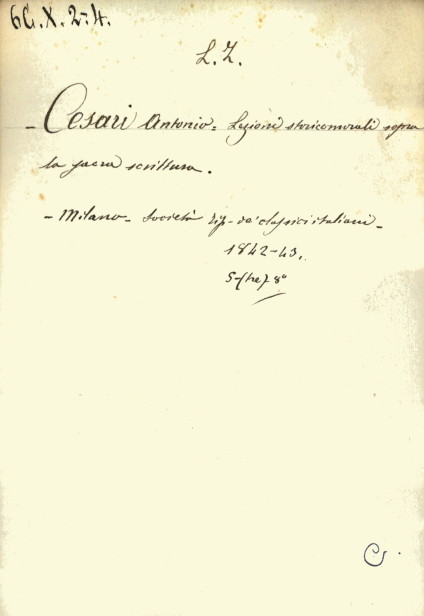 6G.X.2-4.
L. Z.
- Cesari Antonio = Lezioni storicomorali sopra
la sacra scrittura.
- Milano - Società tip. de' classici italiani -
1842-43.
8°
C